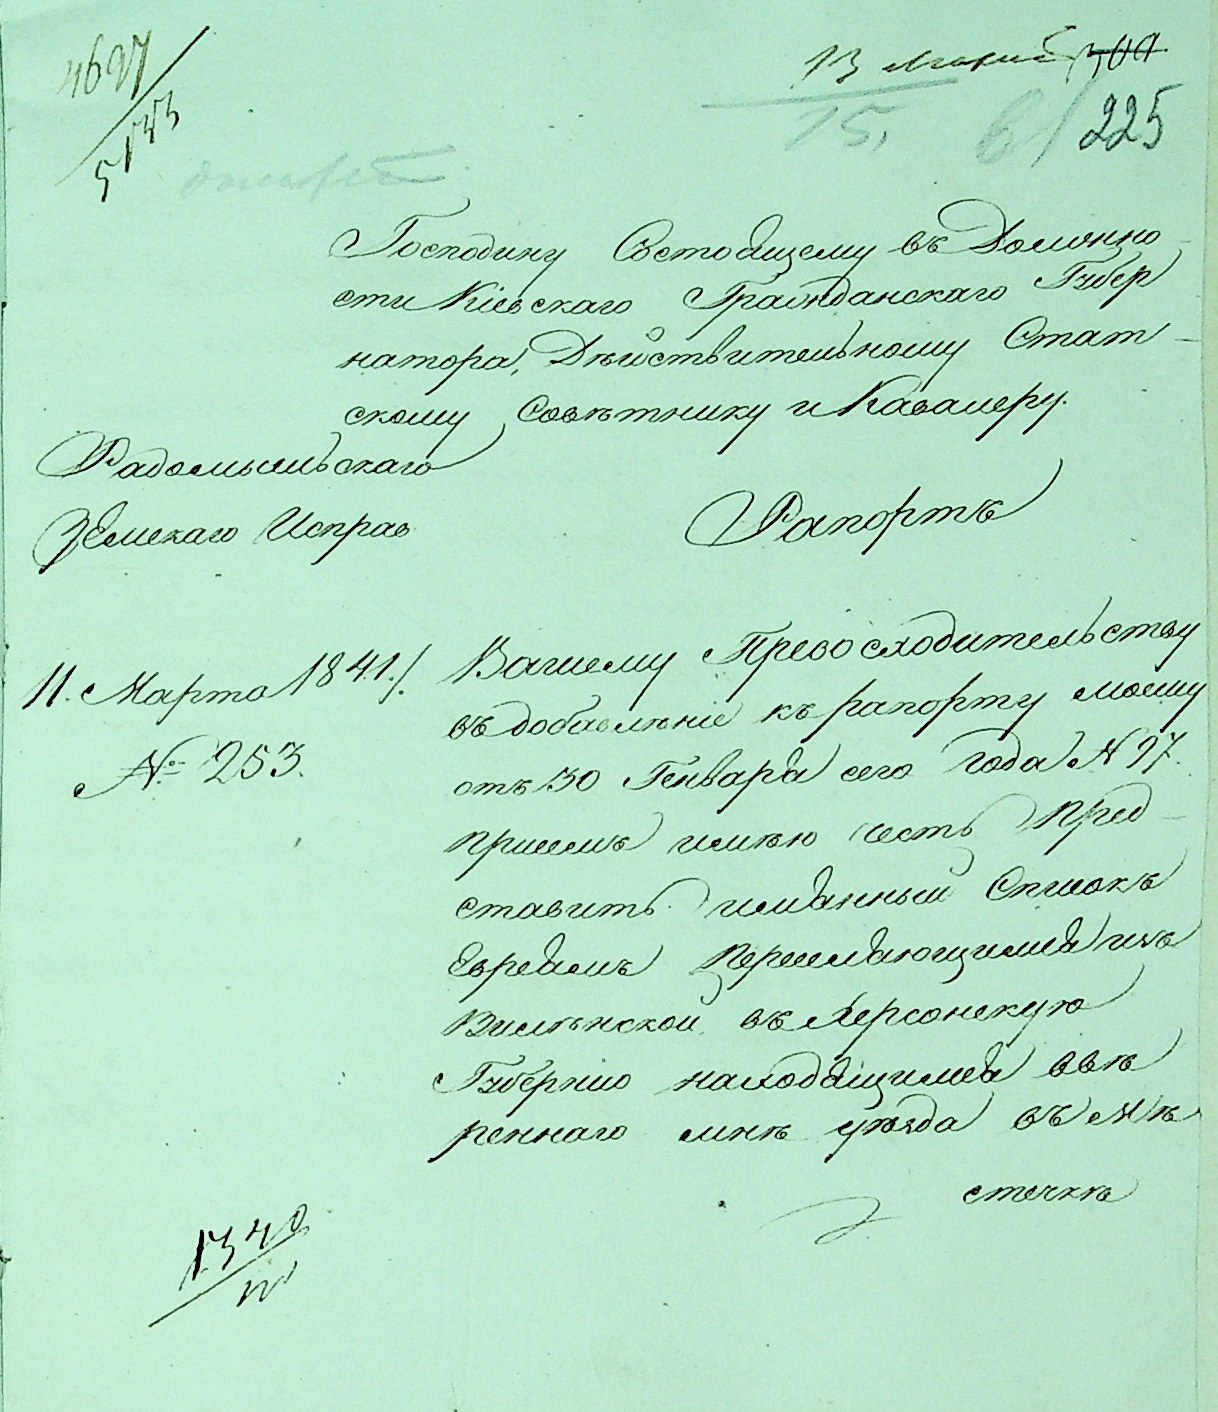 4697
5133
13 Марта
309
15.
61
225
Господину Состоящему въ Должно
сти Кіевскаго Гражданскаго Губер
натора, Дѣйствительному Стат-
скому Совѣтнику и Кавалеру.
Радомысльскаго
Земскаго Исправ
Рапортъ
11. Марта 1841./.
№ 253.
Вашему Превосходительству
въ добавленіе къ рапорту моему
отъ 30 Генваря сего года № 97.
присемъ имѣю честь Пред-
ставить имянный Списокъ
Евреямъ Переселяющимся изъ
Виленской въ Херсонскую
Губернію находящимся ввѣ
реннаго мнѣ уѣзда въ Мѣ
стечкѣ
1340